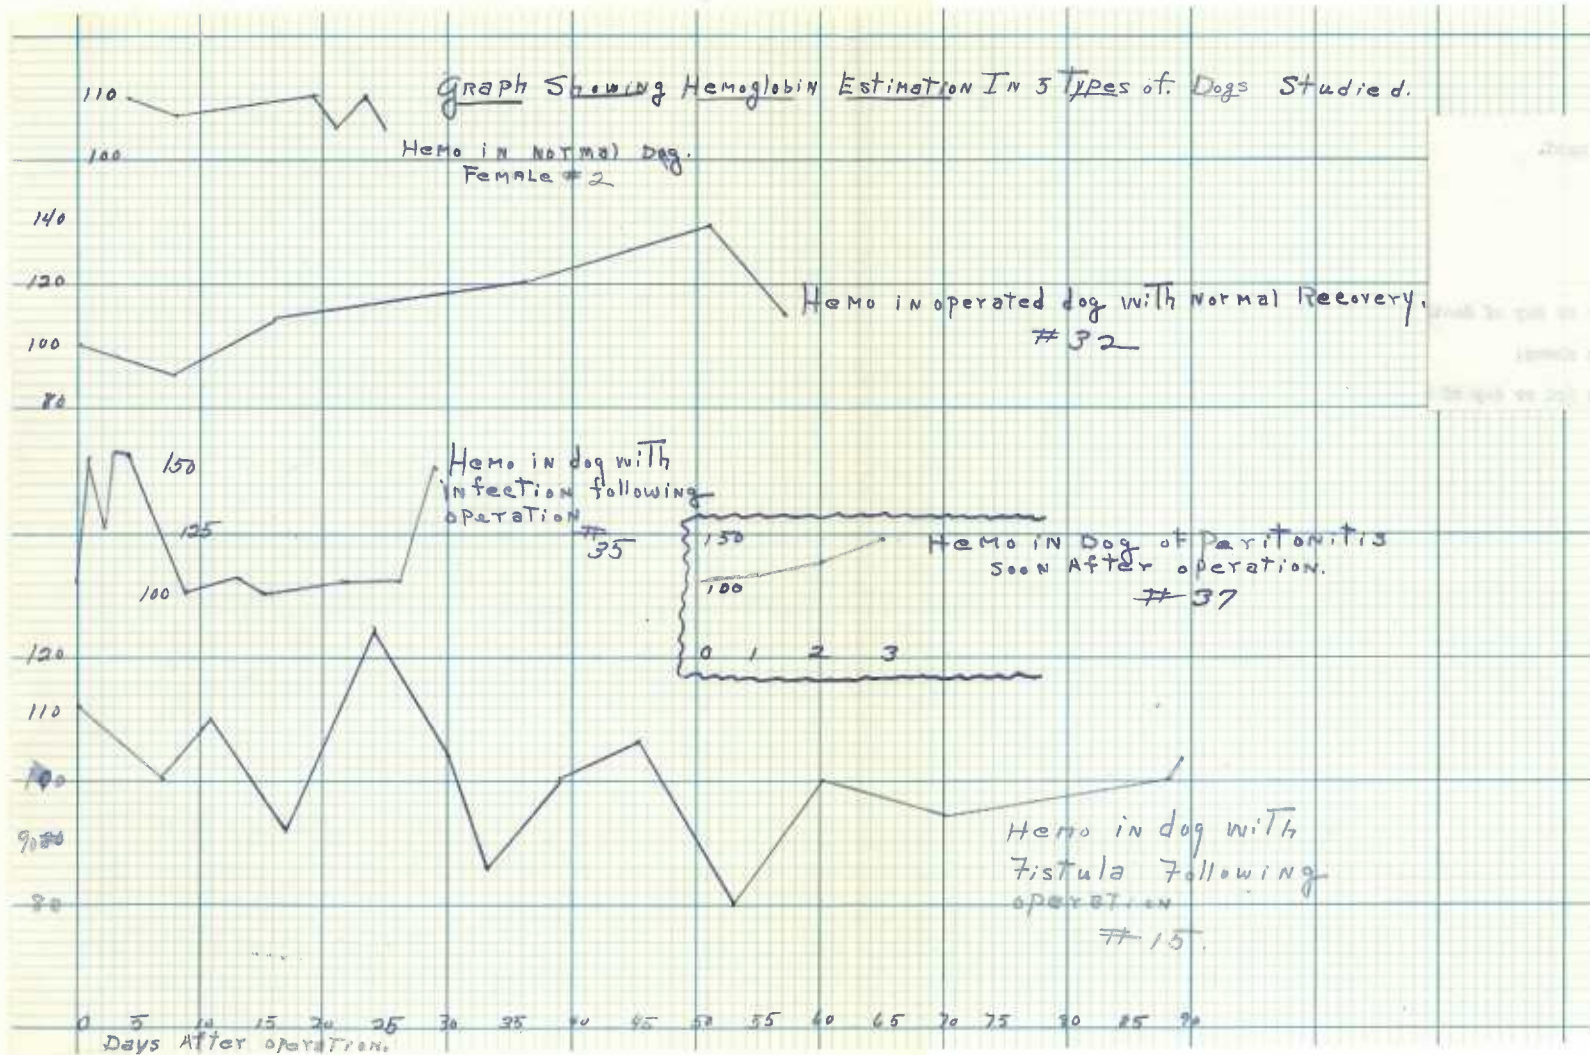 Graph Showing Hemoglobin Estimation In 5 Types of Dogs Studied.
110
100
Hemo in Normal Dog.
Female #2
140
120
100
80
Hemo in operated dog with Normal Recovery.
#32
150
125
100
Hemo in dog with
infection following
operation
#35
150
100
0 1 2 3
Hemo in Dog of Peritonitis
soon After operation.
#37
120
110
100
90
80
Hemo in dog with
Fistula Following
operation
#15.
0 5 10 15 20 25 30 35 40 45 50 55 60 65 70 75 80 85 90
Days After operation.